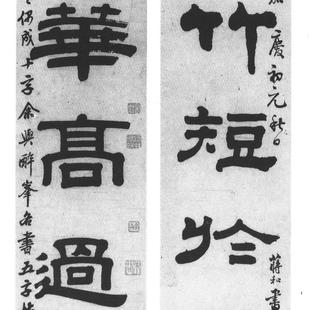 慶初元秋日
蔣和書
竹短於
華高過
成十字余與醉峯各書五字